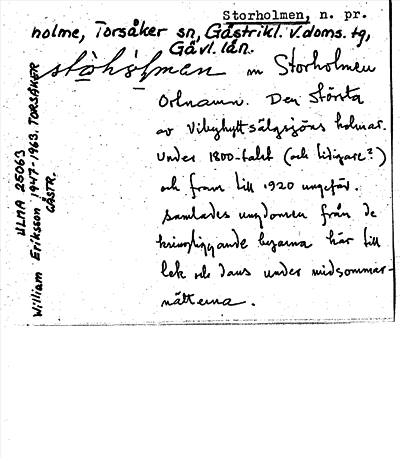 Storholmen, n. pr.
holme, Torsåker sn, Gästrikl. V. doms. tg,
Gävl. län.
stòhólmen m Storholmen
Ortnamn. Den största
av Vibyhyttsälgsjöns holmar.
Under 1800-talet (och tidigare?)
och fram till 1920 ungefär.
samlades ungdomen från de
kringliggande byarna här till
lek och dans under midsommar-
nätterna.
ULMA 25063
William Eriksson 1947-1963. TORSÅKER
GÄSTR.